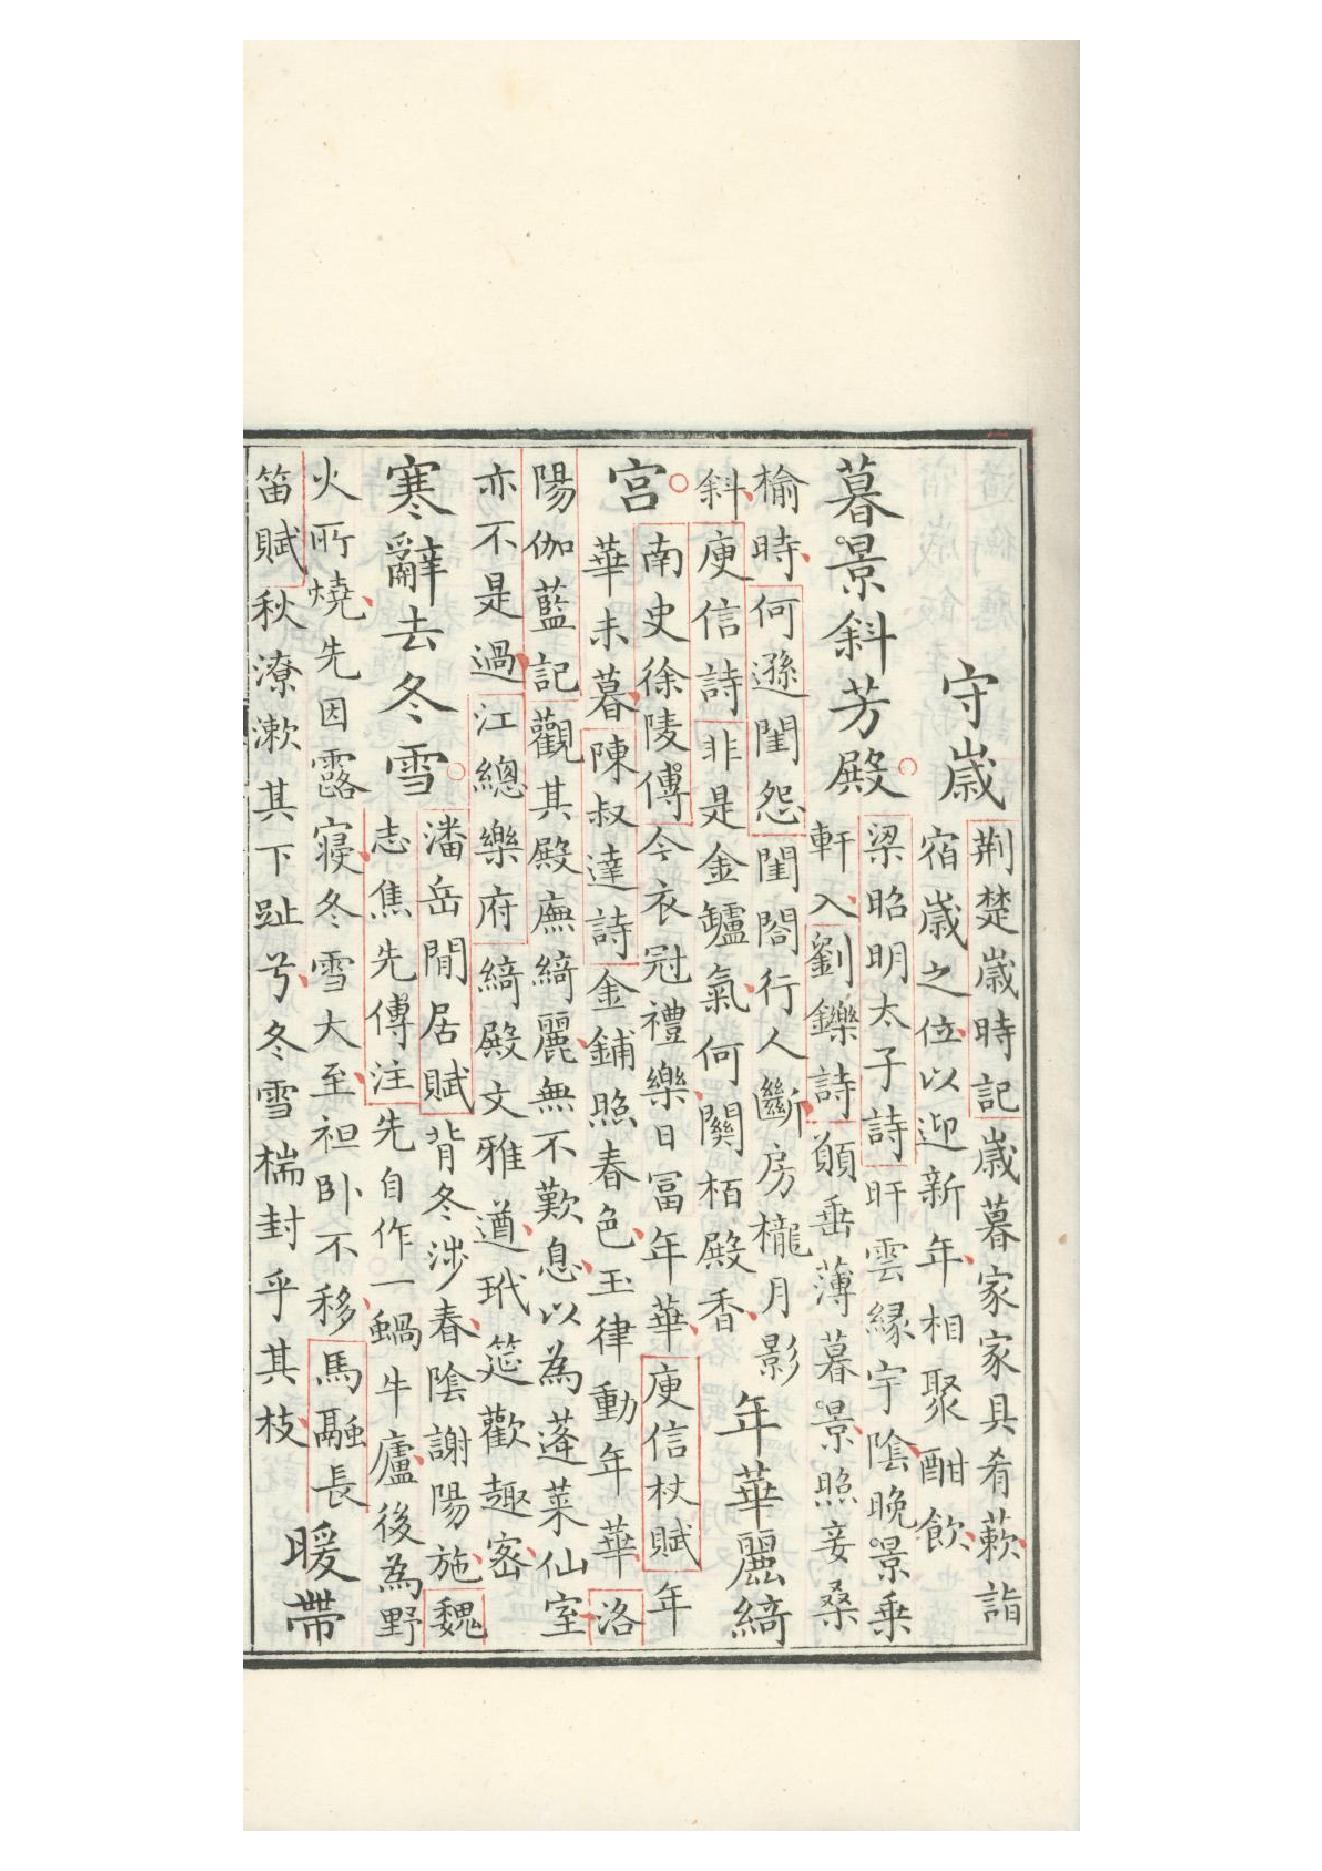 守歲
荆楚歲時記歲暮家家具肴蔌詣
宿歲之位以迎新年相聚酣飲
暮景斜芳殿
梁昭明太子詩旰雲緣宇陰晚景乗
軒入劉鑠詩願垂薄暮景照妾桑
榆時何遜閨怨閨閤行人斷房櫳月影
斜庾信詩非是金罏氣何關栢殿香
年華麗綺
宫
南史徐陵傳今衣冠禮樂日冨年華庾信杖賦年
華未暮陳叔達詩金鋪照春色玉律動年華洛
陽伽藍記觀其殿廡綺麗無不歎息以為蓬莱仙室
亦不是過江總樂府綺殿文雅遒玳筵歡趣宻
寒辭去冬雪
潘岳閒居賦背冬涉春陰謝陽施魏
志焦先傳注先自作一蝸牛廬後為野
火所燒先因露寢冬雪大至袒卧不移馬融長
笛賦秋潦漱其下趾兮冬雪揣封乎其枝
暖帶